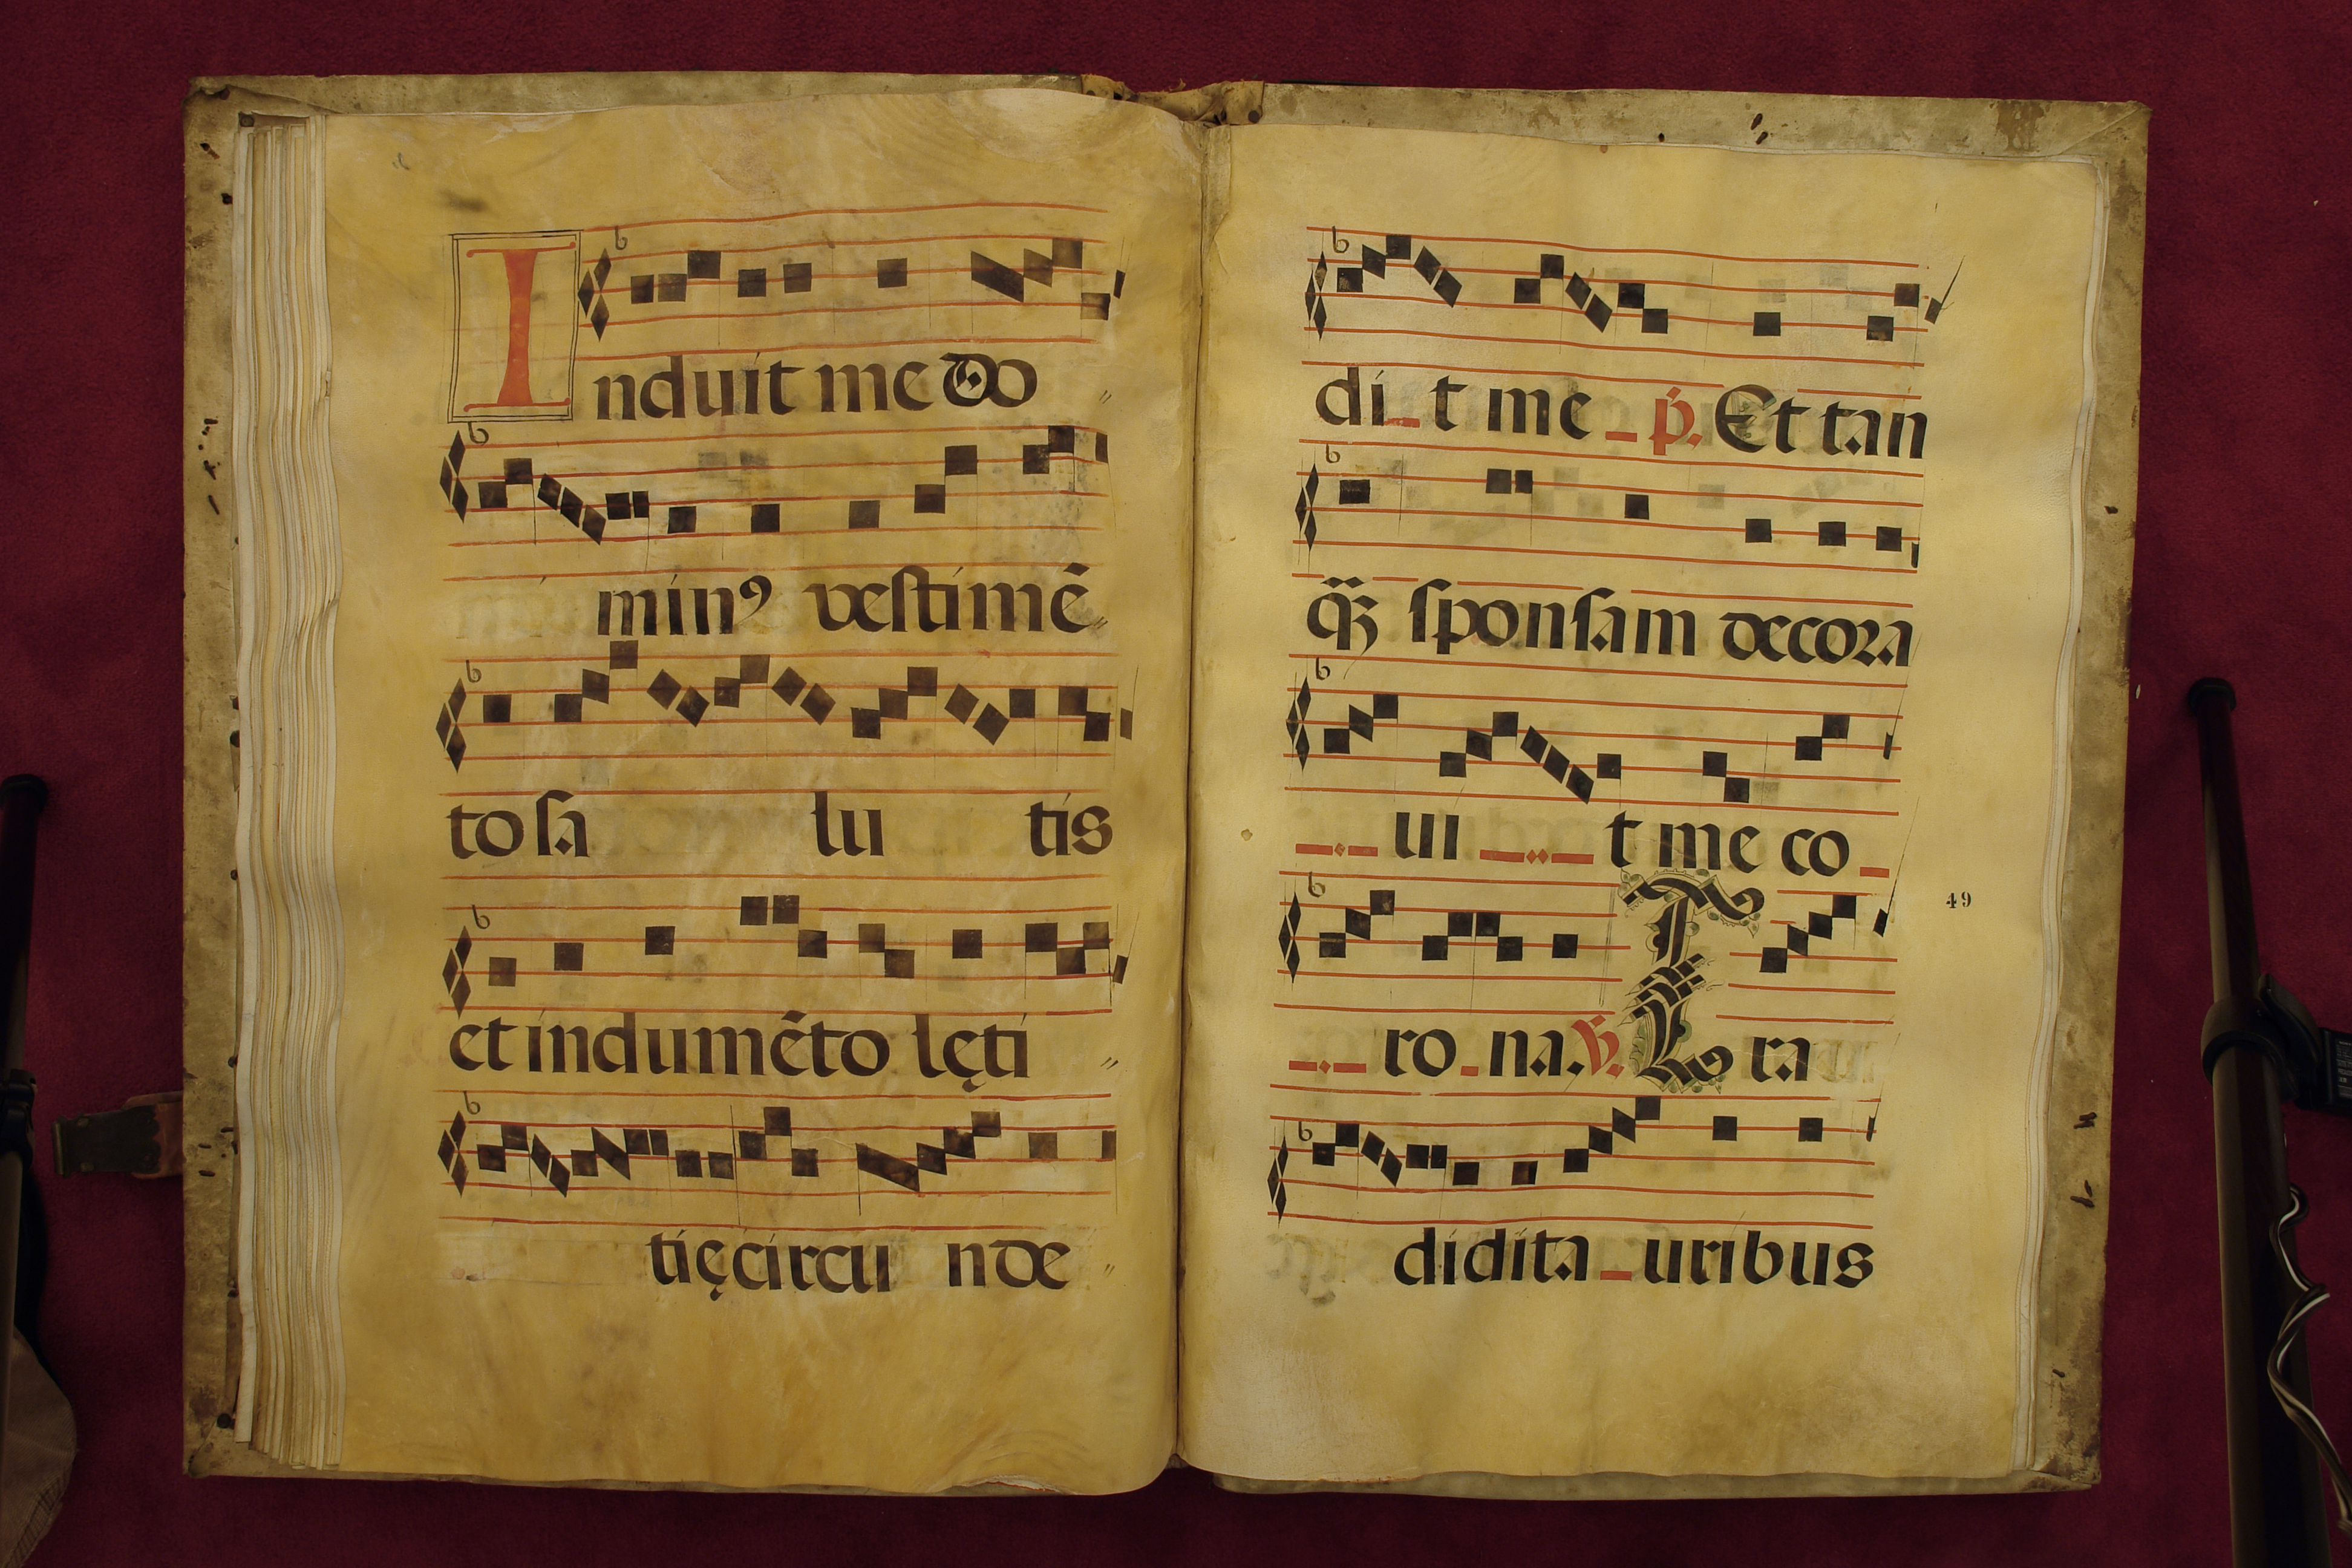 Induit me do
minꝯ vestimē
to sa lu tis
et indumēto lęti
tię circu nde
di_t me _ p̄. Et tan
qȝ̃ sponsam decora
_._ ui _.._ t me co _
_._ ro_na. ℣. Et ra
49
didit a_uribus